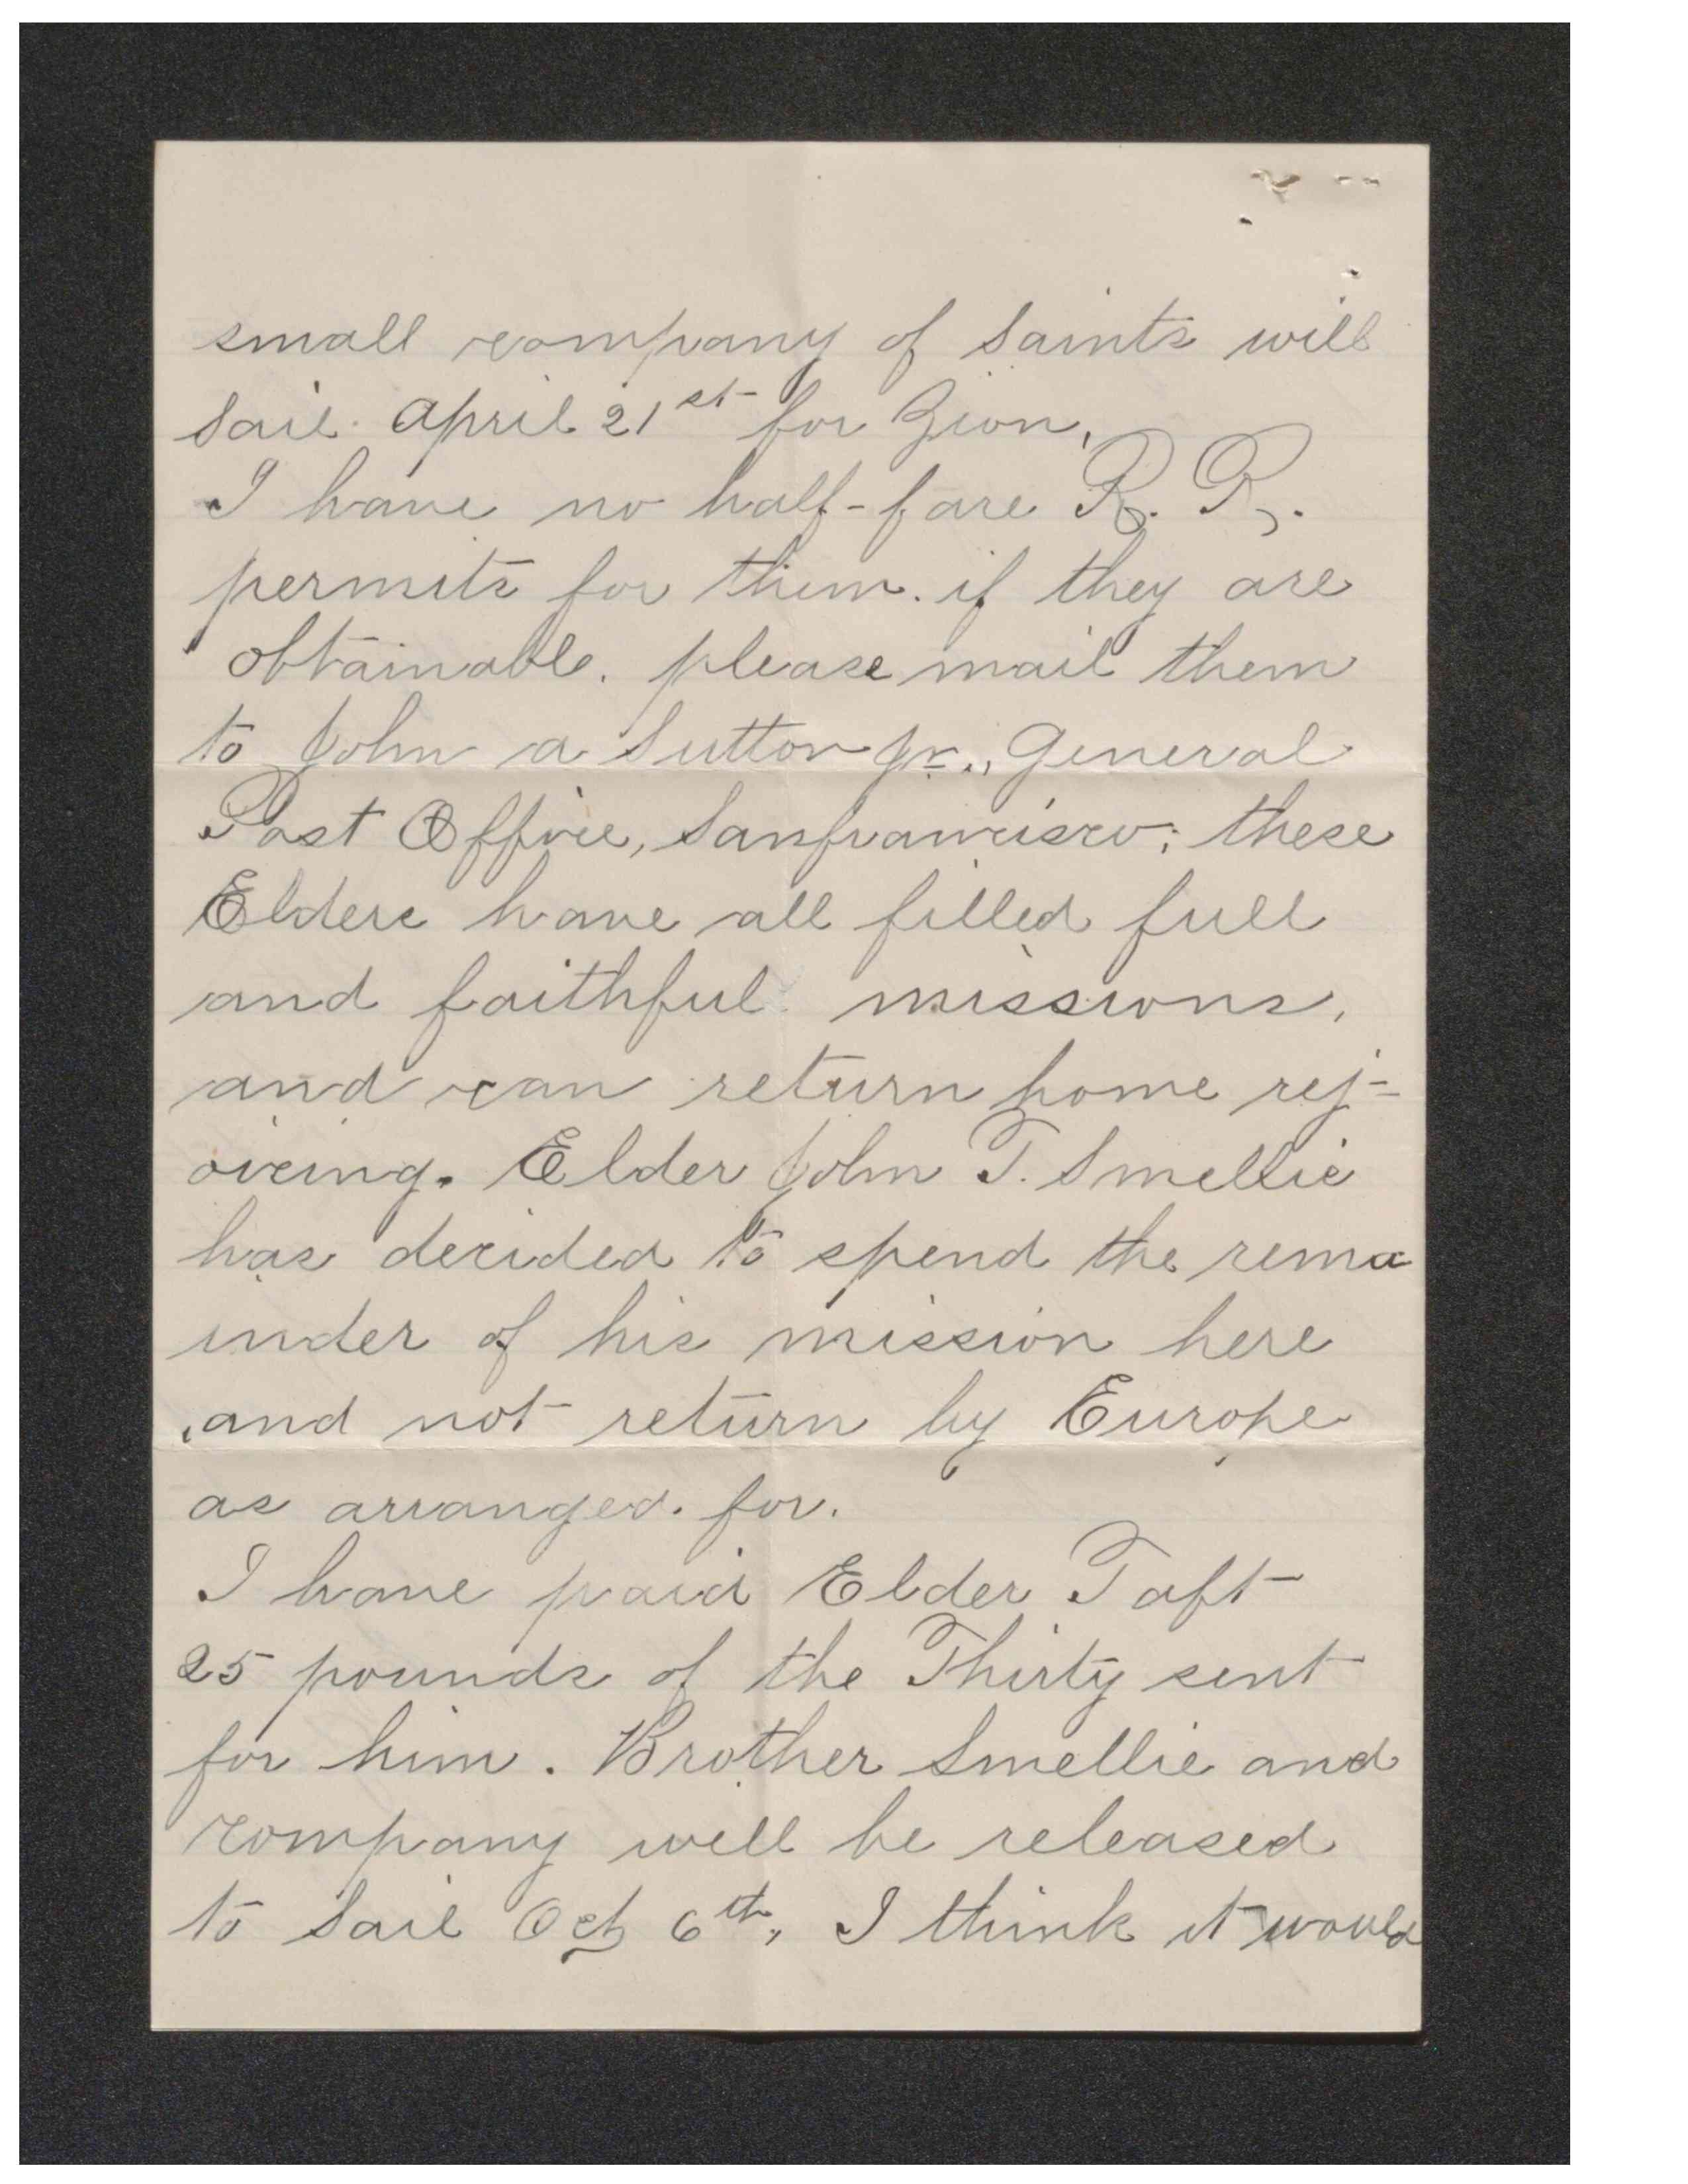 small company of Saints will
Sail. April 21st for Zion,
I have no half-fare R. R.
permits for them. if they are
obtainable. please mail them
to John a Sutton Jr., General
Post Office, Sanfrancisco; these
Elders have all filled full
and faithful missions,
and can return home rej-
oicing. Elder John T. Smellie
has decided to spend the rema
inder of his mission here
and not return by Europe
as arranged. for.
I have paid Elder Taft
25 pounds of the Thirty sent
for him. Brother Smellie and
company will be released
to Sail Oct 6th, I think it would